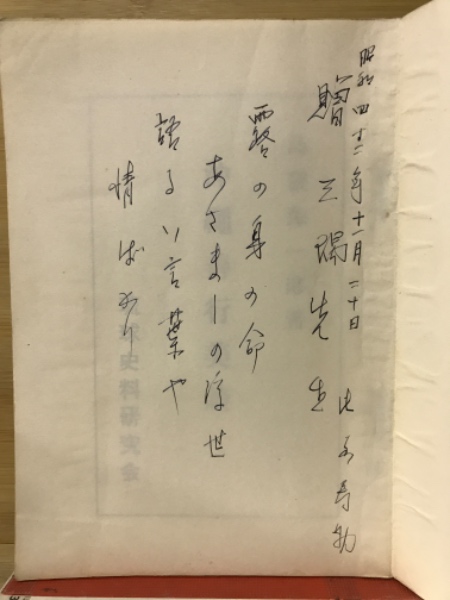 昭和四十二年十一月二十日
贈 先生 比嘉寿助
露の身の命
あさましの浮世
語るい言葉や
情ばかり
史料研究会